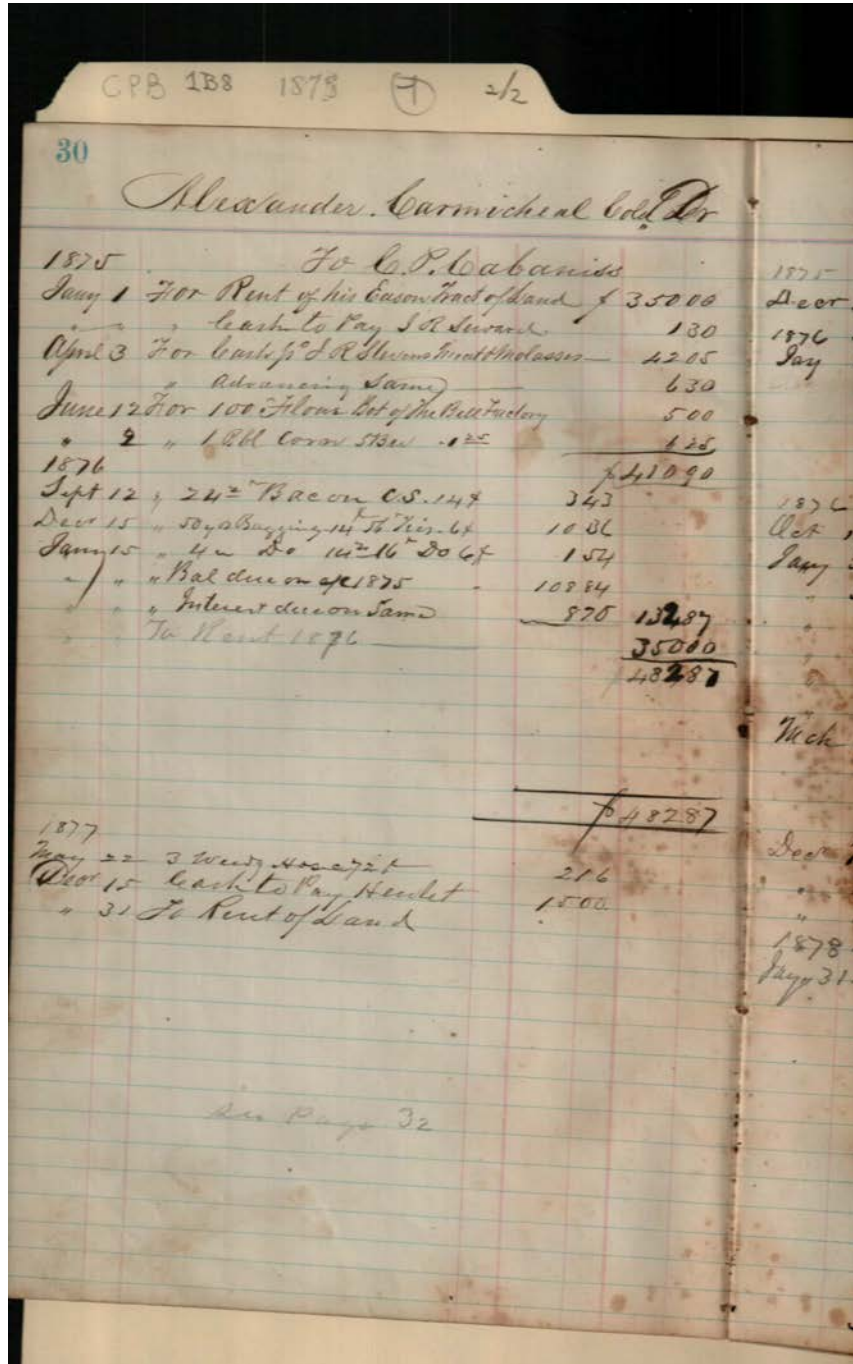 CPB 1B8 1873 1 2/2
30
Alexander. Carmicheal Cold. Dr
1875 To C. P. Cabaniss
Jany 1 For Rent of his Eason Tract of Land $ 350 00
" " " Cash to Pay S R Seward 1 30
April 3 For Cash pd J R Stevens Meat & Molasses 42 05
" Advancing Same 6 30
June 12 For 100 Flour Bot of the Bell Factory 5 00
" 2 " 1 Bbl Corn 5 Bu .125 1 25
1876 $ 410 90
Sept 12 " 24 Bacon C.S. 14¢ 3 43
Decr 15 " 50 yds Bagging 14 56 Ties. 6¢ 10 36
Jany 15 " 4 " Do 14 16 Do 6¢ 1 54
" " " Bal due on a/c 1875 108 84
" " " Interest due on Same 8 70 132 87
" To Rent 1876 350 00
$ 482 87
$ 482 87
1877
May 22 3 Weedg Hose 72¢ 2 16
Decr 15 Cash to Pay Henlet 15 00
" 31 To Rent of Land
See Page 32
1875
Decr.
1876
Jay
1876
Oct 1
Jany
Mch
Decr
"
"
1878
Jany 31